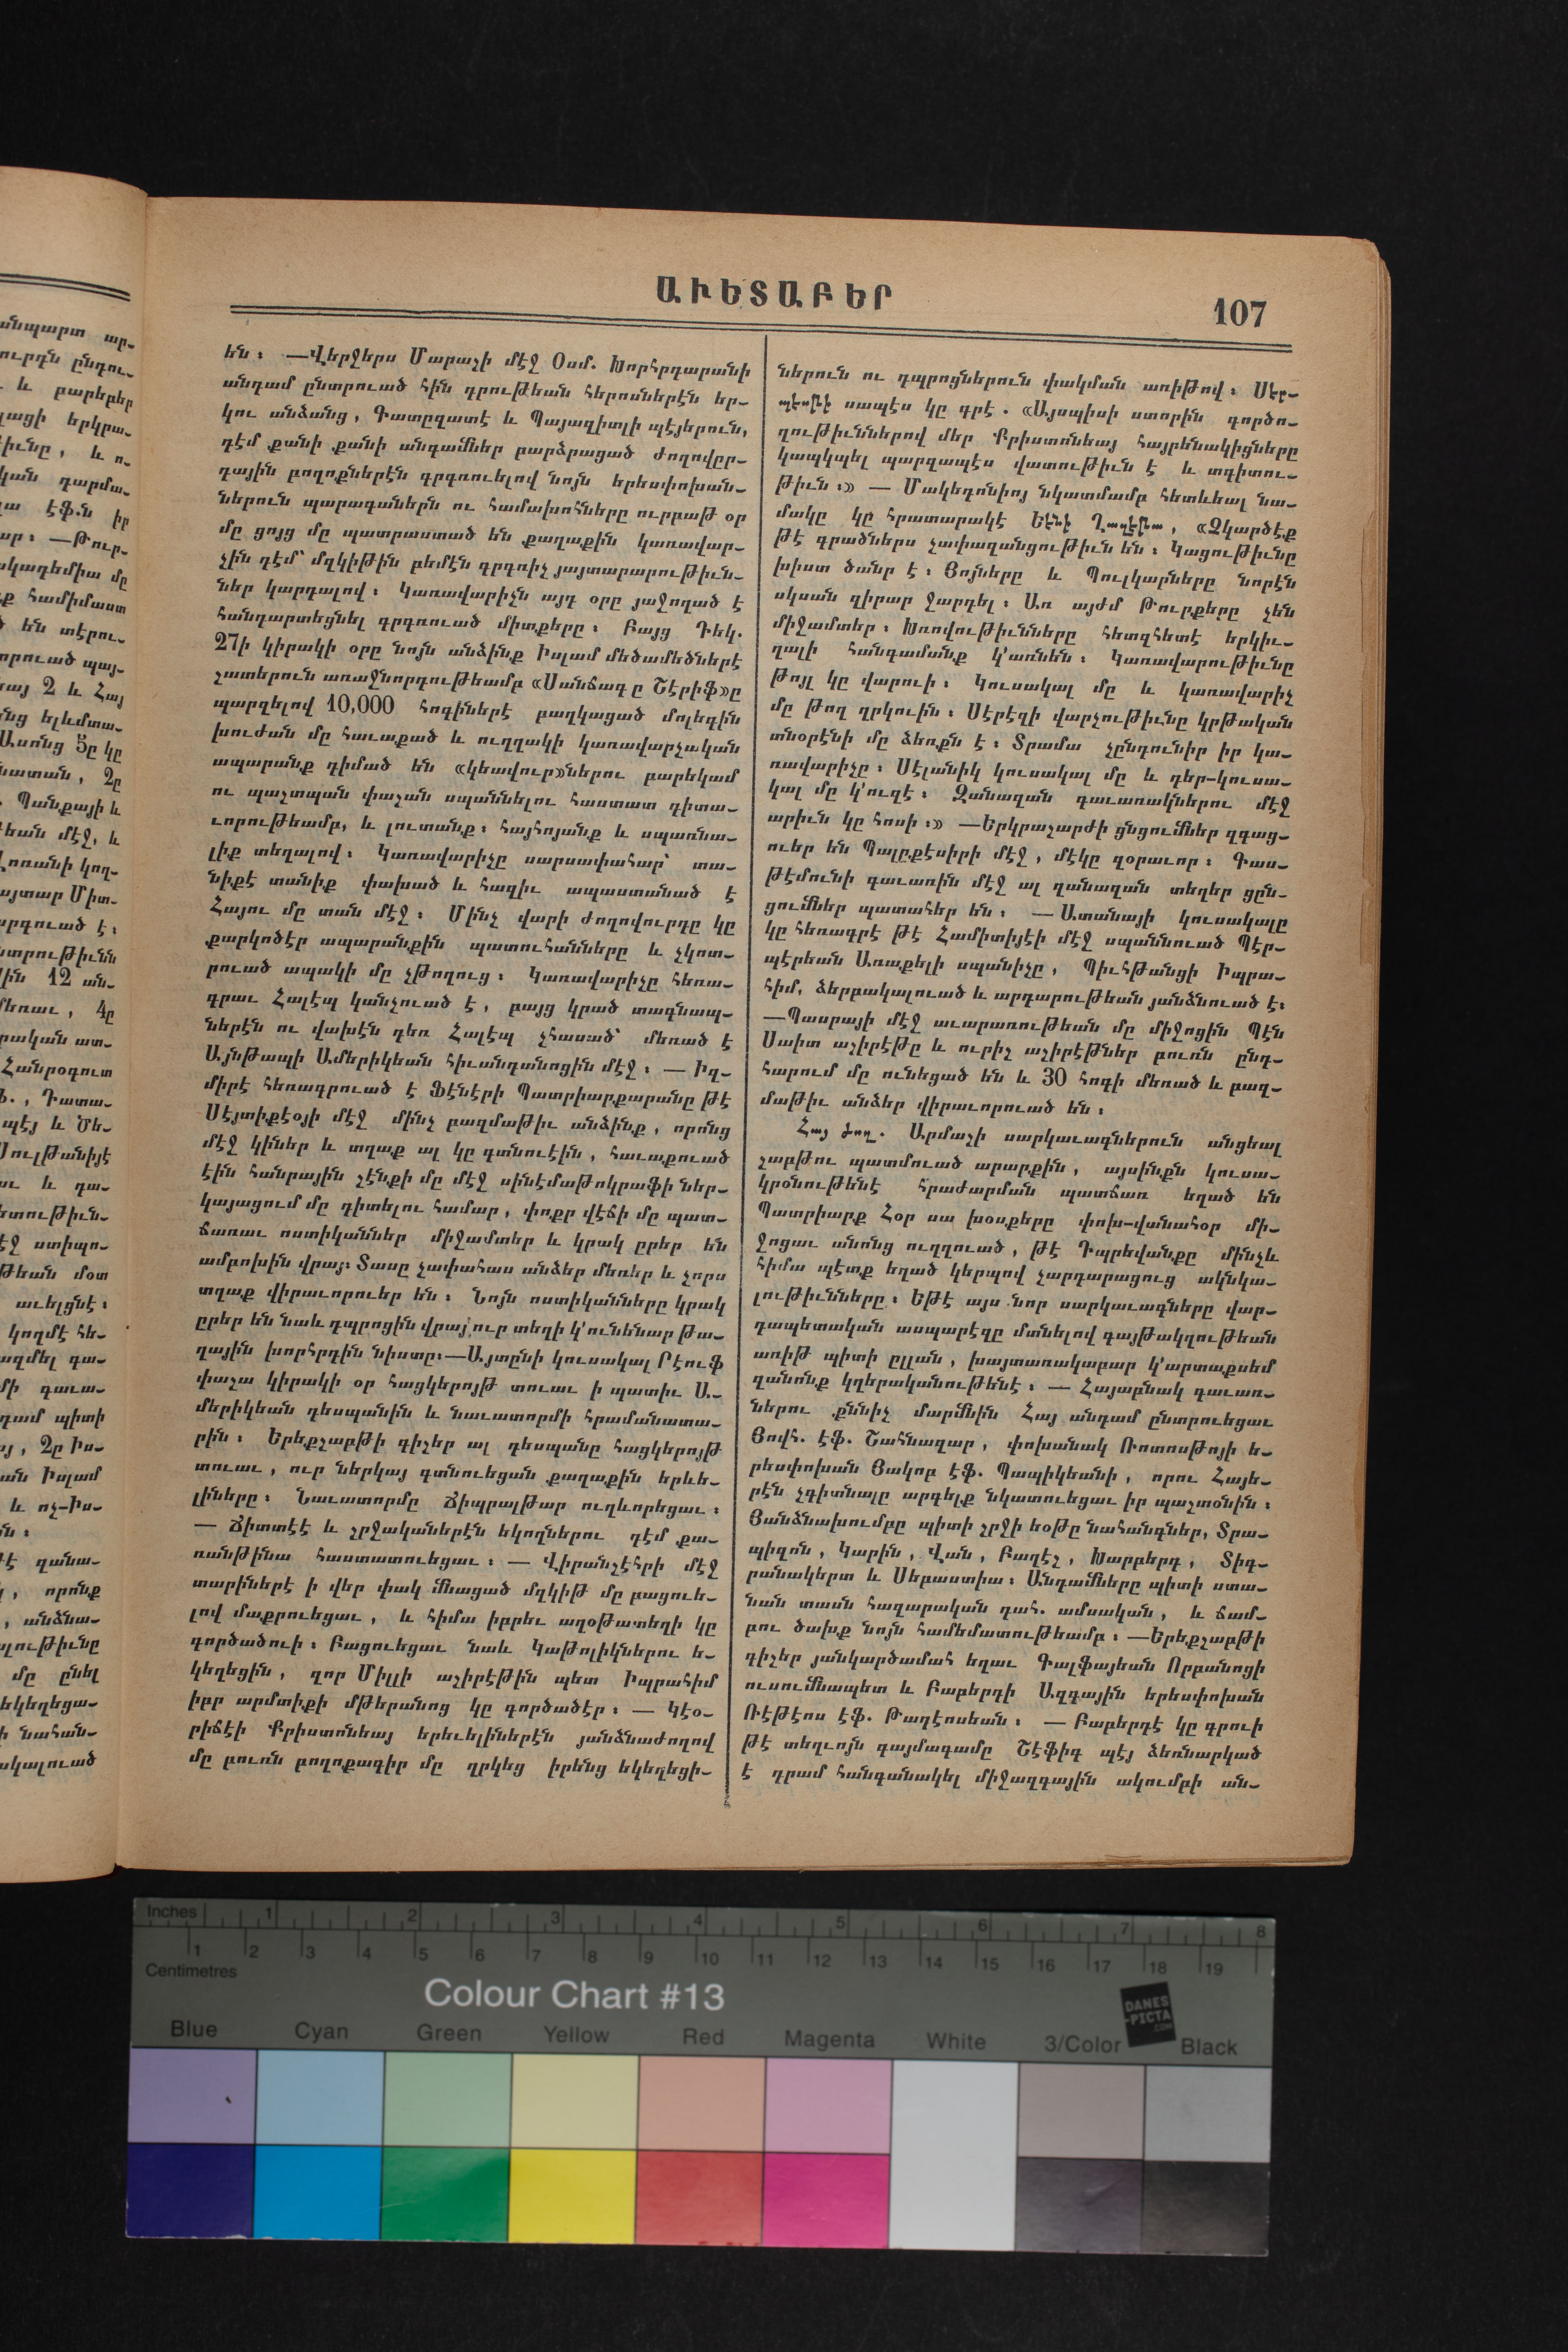 ԱՒԵՏԱԲԵՐ
107
են։ —Վերջերս Մարաշի մէջ Օսմ. Խորհրդարանի
անդամ ընտրուած հին դրութեան հերոսներէն եր-
կու անձանց, Գատըզատէ և Պայազիտլի պէյերուն,
դէմ քանի քանի անգամներ բարձրացած ժողովըր-
դային բողոքներէն գրգռուելով նոյն երեսփոխան-
ներուն պարագաներն ու համախոհները ուրբաթ օր
մը ցոյց մը պատրաստած են քաղաքին կառավար-
չին դէմ՝ մզկիթին բեմէն գրգռիչ յայտարարութիւն-
ներ կարդալով։ Կառավարիչն այդ օրը յաջողած է
հանդարտեցնել գրգռուած միտքերը։ Բայց Դեկ.
27ի կիրակի օրը նոյն անձինք Իսլամ մեծամեծներէ
շատերուն առաջնորդութեամբ «Սանճագ ը Շէրիֆ»ը
պարզելով 10,000 հոգիներէ բաղկացած մոլեգին
խուժան մը հաւաքած և ուղղակի կառավարչական
ապարանք դիմած են «կեավուր»ներու բարեկամ
ու պաշտպան փաշան սպաննելու հաստատ դիտա-
ւորութեամբ, և լուտանք։ հայհոյանք և սպառնա-
լիք տեղալով։ Կառավարիչը սարսափահար՝ տա-
նիքէ տանիք փախած և հազիւ ապաստանած է
Հայու մը տան մէջ։ Մինչ վարի ժողովուրդը կը
քարկոծէր ապարանքին պատուհանները և չկոտ-
րուած ապակի մը չթողուց։ Կառավարիչը հեռա-
գրաւ Հալէպ կանչուած է, բայց կրած տագնապ-
ներէն ու վախէն դեռ Հալէպ չհասած՝ մեռած է
Այնթապի Ամերիկեան հիւանդանոցին մէջ։ — Իզ-
միրէ հեռագրուած է Ֆէնէրի Պատրիարքարանը թէ
Սէյտիքէօյի մէջ մինչ բազմաթիւ անձինք, որոնց
մէջ կիներ և տղաք ալ կը գտնուէին, հաւաքուած
էին հանրային շէնքի մը մէջ սինէմաթոկրաֆի ներ-
կայացում մը դիտելու համար, փոքր վէճի մը պատ-
ճառաւ ոստիկաններ միջամտեր և կրակ ըրեր են
ամբոխին վրայ։ Տասը չափահաս անձեր մեռեր և չորս
տղաք վիրաւորուեր են։ Նոյն ոստիկանները կրակ
ըրեր են նաև դպրոցին վրայ ուր տեղի կ'ունենար թա-
ղային խորհրդին նիստը։—Այտընի կուսակալ Րէուֆ
փաշա կիրակի օր հացկերոյթ տուաւ ի պատիւ Ա.-
մերիկեան դեսպանին և նաւատորմի հրամանատա-
րին։ Երեքշաբթի գիշեր ալ դեսպանը հացկերոյթ
տուաւ, ուր ներկայ գտնուեցան քաղաքին երևե-
լիները։ Նաւատորմը Ճիպրալթար ուղևորեցաւ։
— Ճիտտէէ և շրջականերէն եկողներու դէմ քա-
ռանթինա հաստատուեցաւ։ — Վիրանշէհրի մէջ
տարիներէ ի վեր փակ մնացած մզկիթ մը բացուե-
լով մաքրուեցաւ, և հիմա իբրեւ աղօթատեղի կը
գործածուի։ Բացուեցաւ նաև Կաթոլիկներու ե-
կեղեցին, զոր Միլլի աշիրէթին պետ Իպրահիմ
իբր արմտիքի մթերանոց կը գործածէր։ — Կէօ-
րիճէի Քրիստոնեայ երեւելիներէն յանձնաժողով
մը բուռն բողոքագիր մը ղրկեց իրենց եկեղեցի-
ներուն ու դպրոցներուն փակման առիթով։ Սէր-
պէսթի սապէս կը գրէ. «Այսպիսի ստորին գործո-
ղութիւններով մեր Քրիստոնեայ հայրենակիցները
կապկպել պարզապէս վատութիւն է և տգիտու-
թիւն։» — Մակեդոնիոյ նկատմամբ հետևեալ նա-
մակը կը հրատարակէ Ենի Ղազէթա, «Չկարծէք
թէ գրածներս չափազանցութիւն են։ Կացութիւնը
խիստ ծանր է։ Յոյները և Պուլկարները նորէն
սկսան զիրար ջարդել։ Առ այժմ Թուրքերը չեն
միջամտեր։ Խռովութիւնները հետզհետէ երկիւ-
ղալի հանգամանք կ'առնեն։ Կառավարութիւնը
թոյլ կը վարուի։ Կուսակալ մը և կառավարիչ
մը թող ղրկուին։ Սէրէզի վարչութիւնը կրթական
տնօրէնի մը ձեռքն է։ Տրամա չընդունիր իր կա-
ռավարիչը։ Սէլանիկ կուսակալ մը և դեր-կուսա-
կալ մը կ'ուզէ։ Զանազան գաւառակներու մէջ
արիւն կը հոսի։» —Երկրաշարժի ցնցումներ զգաց-
ուեր են Պալըքէսիրի մէջ, մէկը զօրաւոր։ Գաս-
թէմունի գաւառին մէջ ալ զանազան տեղեր ցըն-
ցումներ պատահեր են։ — Ատանայի կուսակալը
կը հեռագրէ թէ Համիտիյէի մէջ սպաննուած Պէր-
պէրեան Առաքելի սպանիչը, Պիւհթանցի Իպրա-
հիմ, ձերբակալուած և արդարութեան յանձնուած է։
—Պասրայի մէջ աւարառութեան մը միջոցին Պէն
Սաիտ աշիրէթը և ուրիշ աշիրէթներ բուռն ընդ-
հարում մը ունեցած են և 30 հոգի մեռած և բազ-
մաթիւ անձեր վիրաւորուած են։
Հայ ժող. Արմաշի սարկաւագներուն անցեալ
շաբթու պատմուած արարքին, այսինքն կուսա-
կրօնութենէ հրաժարման պատճառ եղած են
Պատրիարք Հօր սա խօսքերը փոխ-վանահօր մի-
ջոցաւ անոնց ուղղուած, թէ Դպրեվանքը մինչև
հիմա պէտք եղած կերպով չարդարացուց ակնկա-
լութիւնները։ Եթէ այս նոր սարկաւագները վար-
դապետական ասպարէզը մտնելով գայթակղութեան
առիթ պիտի ըլլան, խայտառակաբար կ'արտաքսեմ
զանոնք կղերականութենէ։ — Հայաբնակ գաւառ-
ներու քննիչ մարմնին Հայ անդամ ընտրուեցաւ
Յովհ. էֆ. Շահնազար, փոխանակ Ռոտոսթոյի ե-
րեսփոխան Յակոբ էֆ. Պապիկեանի, որու Հայե-
րէն չգիտնալը արգելք նկատուեցաւ իր պաշտօնին։
Յանձնախումբը պիտի շրջի եօթը նահանգներ, Տրա-
պիզոն, Կարին, Վան, Բաղէշ, Խարբերդ, Տիգ-
րանակերտ և Սեբաստիա։ Անդամները պիտի ստա-
նան տասն հազարական ղահ. ամսական, և ճամ-
բու ծախք նոյն համեմատութեամբ։ —Երեքշաբթի
գիշեր յանկարծամահ եղաւ Գալֆայեան Որբանոցի
ուսումնապետ և Բաբերդի Ազգային երեսփոխան
Ռէթէոս էֆ. Թաղէոսեան։ — Բաբերդէ կը գրուի
թէ տեղւոյն գայմագամը Շէֆիգ պէյ ձեռնարկած
է դրամ հանգանակել միջազգային ակումբի ան-
Inches 1 2 3 4 5 6 7 8
1 2 3 4 5 6 7 8 9 10 11 12 13 14 15 16 17 18 19
Centimetres
Colour Chart #13
DANES
-PICTA
.COM
Blue Cyan Green Yellow Red Magenta White 3/Color Black